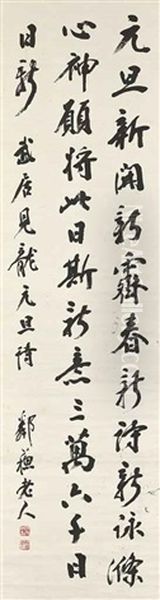 元旦新開新霽春新詩新詠滌
心神願將此日斯新意三萬六千日
日新 武居見龍元旦詩 鄰蘓老人